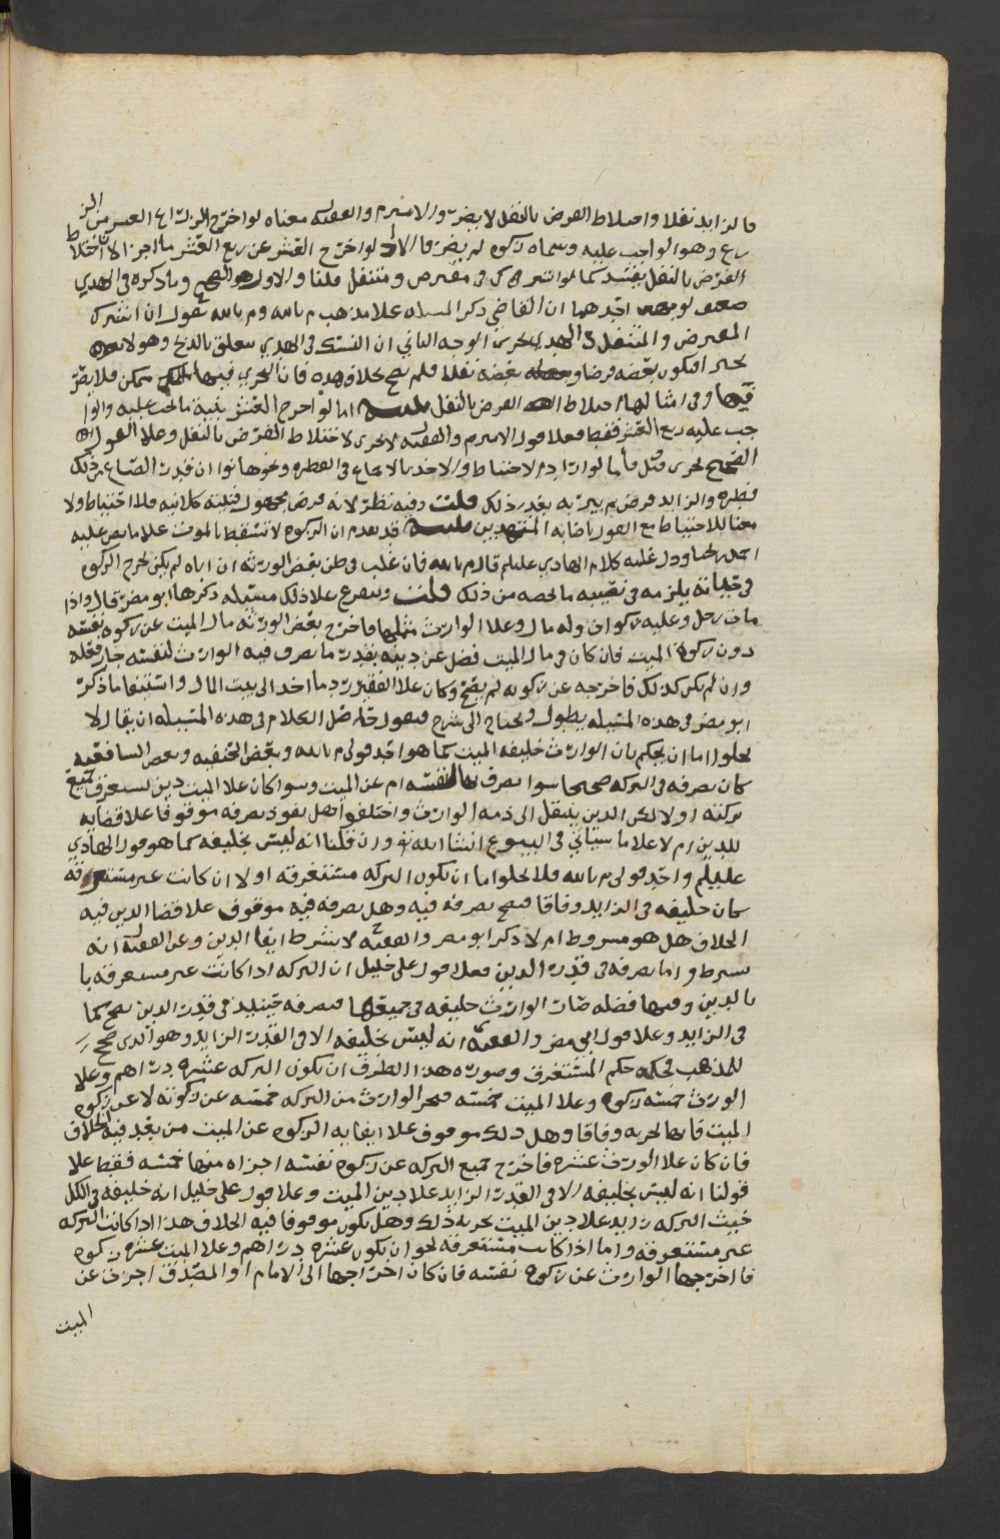 فالزايد نفلا واختلاط الفرض بالنفل لا يضر والامير م والفقيه معناه لو اخرج الزراع العشر من الز
رع وهو الواجب عليه وسماه زكوة لم يضر قالا لو اخرج العشر عن ربع العشر ما اجزا لان اختلاط
الفرض بالنفل يفسد كما لو اشترك في مفترض ومتنفل قلنا والاول هو الصحيح وما ذكره في الهدي
ضعف لوجهين احدهما ان القاضي ذكر المسله علا مذهب م بالله وم بالله يقول ان اشترك
المفترض والمتنفل في الهدي يجزي الوجه الثاني ان النسك في الهدي يتعلق بالذبح وهو لا
فيكون بعضه فرضا وبعضه نفلا فلم يصح بخلاف هذه فان التجزي فيها ممكن فلا يضر
فيها وفي امثالها اختلاط الفرض بالنفل اما لو اخرج العشر بنية ما يجب عليه والوا
جب عليه ربع العشر فقط فعلا قول الامير م والفقيه لا يجزي لاختلاط الفرض بالنفل وعلا القول
الصحيح يجزي
فطره والزايد فرض لم يبر به بعد ذلك قلت وفيه نظر لانه فرض مجهول فنيته كلا نيه فلا احتياط ولا
معنا للاحتياط مع القول باصابه المجتهدين قد تقدم ان الزكوه لا تسقط بالموت علا ما نص عليه
ودل عليه كلام الهادي عليلم قال م بالله فان غلب في ظن بعض الورثه ان اباه لم يكن يخرج الزكوه
في حياته يلزمه في نصيبه ما يخصه من ذلك قلت ويتفرع علا ذلك مسئله ذكرها ابو مضر قال واذا
مات رجل وعليه زكوات وله مال وعلا الوارث مثلها فاخرج بعض الورثه مال الميت عن زكوه نفسه
دون زكوة الميت فان كان في مال الميت فضل عن دينه بقدر ما تصرف فيه الوارث لنفسه جاز فعله
وان لم يكن كذلك فاخرجه عن زكوته لم يصح وكان علا الفقير رد ما اخذ الى بيت المال واستيفا ما ذكره
ابو مضر في هذه المسيله يطول ويحتاج الى شرح فنقول حاصل الكلام في هذه المسيله ان يقال لا
يخلوا اما ان يحكم بان الوارث خليفه الميت كما هو احد قولي م بالله وبعض الحنفيه وبعض الشافعيه
كان تصرفه في التركه صحيحا سوا تصرف لنفسه ام عن الميت وسوا كان علا الميت دين يستغرق جميع
تركته او لا لكن الدين ينتقل الى ذمه الوارث واختلفوا هل نفوذ تصرفه موقوفا علا قضايه
للدين ام لا علا ما سياتي في البيوع انشا الله تع وان قلنا انه ليس بخليفه كما هو قول الهادي
عليلم واحد قولي م بالله فلا يخلوا اما ان يكون التركه مستغرقه او لا ان كانت غير مستغرقه
كان خليفه في الزايد وفاقا فيصح تصرفه فيه وهل تصرفه فيه موقوف علا قضا الدين فيه
الخلاف هل هو مشروط ام لا ذكر ابو مضر والفقيه لا يشترط ايفا الدين وعن الفقيه انه
يشترط واما تصرفه في قدر الدين فعلا قول علي خليل ان التركه اذا كانت غير مستغرقه با
بالدين وفيها فضله صار الوارث خليفه في جميعها فتصرفه حينيذ في قدر الدين يصح كما
في الزايد وعلا قول ابي مضر والفقيه انه ليس بخليفه الا في القدر الزايد وهو الذي صحح
للمذهب فحكمه حكم المستغرق وصوره هذا الطرف ان يكون التركه عشره دراهم وعلا
الورث خمسه زكوه وعلا الميت خمسه فيخرج الوارث من التركه خمسه عن زكوته لا عن زكوه
الميت فانها تجزيه وفاقا وهل ذلك موقوف علا ايفايه الزكوه عن الميت من بعد فيه الخلاف
فان كان علا الورث عشره فاخرج جميع التركه عن زكوه نفسه اجزاه منها خمسه فقط علا
قولنا انه ليس بخليفه الا في القدر الزايد علا دين الميت وعلا قول علي خليل انه خليفه في الكل
حيث التركه زايد علا دين الميت يجزيه ذلك وهل يكون موقوفا فيه الخلاف هذا اذا كانت التركه
غير مستغرقه واما اذا كانت مستغرقه نحو ان يكون عشره دراهم وعلا الميت عشره زكوه
فاخرجها الوارث عن زكوه نفسه فان كان اخراجها الى الامام او المصدق اجزت عن
الميت